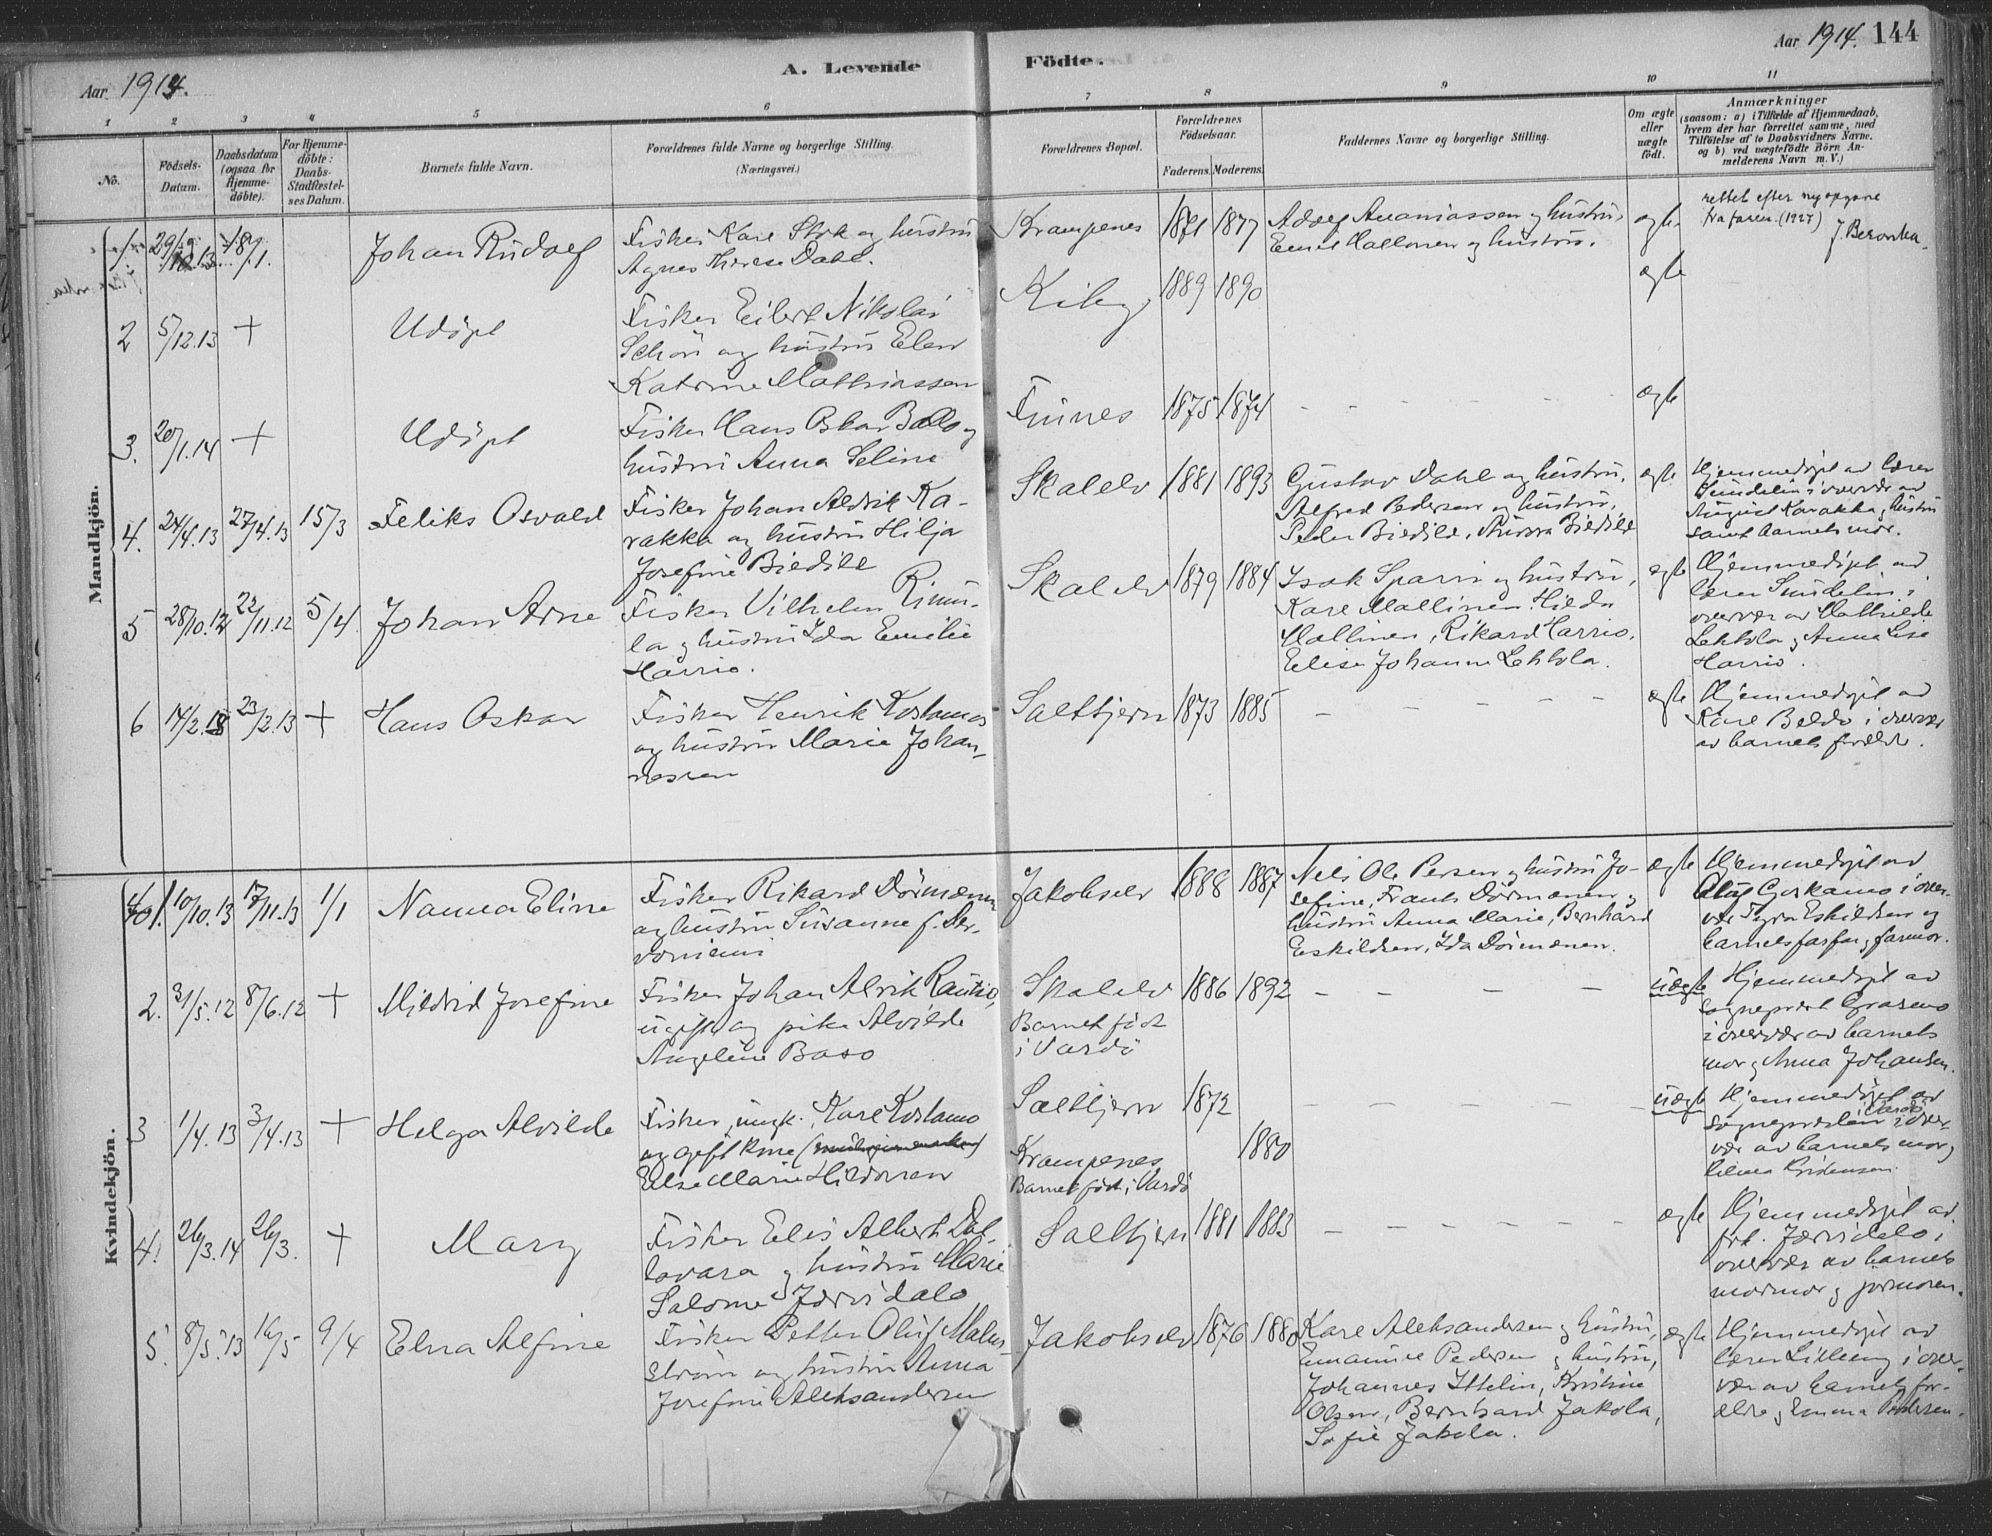 Aar 1914.
A. Levende
Födte.
Aar 1914. 144
1 2 3 4 5 6 7 8 9 10 11
No.
Födsels-
Datum.
Daabsdatum
(ogsaa for
Hjemme-
döbte).
For Hjemme-
döbte:
Daabs-
Stadfæstel-
ses Datum.
Barnets fulde Navn.
Forældrenes fulde Navne og borgerlige Stilling.
(Næringsvei.)
Forældrenes Bopæl.
Forældrenes
Födselsaar.
Faderens. Moderens.
Faddernes Navne og borgerlige Stilling.
Om ægte
eller
uægte
födt.
Anmærkninger
(saasom: a) i Tilfælde af Hjemmedaab,
hvem der har forrettet samme, med
Tilföielse af to Daabsvidners Navne.
og b) ved uægtefödte Börn An-
melderens Navn m. V.)
Mandkjön.
1. Johan Rudolf
Fisker Karl Stok og hustru
Agnes Therese Dahl.
Krampenes 1871 1877
Adolf Ananiassen og hustru,
Emil Hallonen og hustru.
ægte
rettet efter ny opgave
fra faren. (1927)
J. Beronka.
2 5/12.13 + Udöpt
Fisker Eilert Nikolai
Schön og hustru Elen
Katrine Mathiassen
Kiberg 1889 1890 ægte
3. 20/1.14 + Udöpt
Fisker Hans Oskar Ballo og
hustru Anna Seline
Finnes 1875 1874 – – – – – ægte
4. 24/4.13 27/4.13 15/3 Feliks Osvald
Fisker Johan Aldrik Ka-
rakka og hustru Hilja
Josefine Biedilæ
Skalelv 1881 1893
Gustav Dahl og hustru,
Alfred Pedersen og hustru,
Peder Biedilæ, Aurora Biedilæ
ægte
Hjemmedöpt av lærer
Sundelin i overvær av
August Karakka, hustru
samt barnets mor.
5 28/10.12 22/11.12 5/4 Johan Arne
Fisker Vilhelm Rinni-
la og hustru Ida Emilie
Harrio.
Skalelv 1879 1884
Isak Sparri og hustru,
Karl Mallinen, Hilda
Mallinen, Rikard Harrio.
Elise Johanne Lehtola.
ægte
Hjemmedöpt av
lærer Sundelin i
overvær av Mathilde
Lehtola og Anna Lise
Harrio.
6 14/2.13 23/2.13 + Hans Oskar
Fisker Henrik Kostamo
og hustru Marie Johan-
nessen
Saltbjern 1873 1885 – – – – – ægte
Hjemmedöpt av
Karl Beldo i overvær
av barnets forældre.
Kvindekjön.
1. 10/10.13 17/11.13 1/1 Nanna Eline
Fisker Rikard Dörmænen
og hustru Susanne f. Ar-
voniemi
Jakobselv 1888 1887
Nels Ole Persen og hustru Jo-
sefine, Frants Dörmænen og
hustru Anna Marie, Bernhard
Eskildsen, Ida Dörmænen.
ægte
Hjemmedöpt av
Olaf Goskamo i over-
vær Tyra Eskildsen og
barnets farfar og farmor.
2. 31/5.12 8/6.12 + Mildrid Josefine
Fisker Johan Alrik Rautio,
ugift og pike Alvilde
Angeline Baso
Skalelv 1886 1892 – – – –
Barnet födt
i Vardö
uægte
Hjemmedöpt av
sogneprest Grasmo
i overvær av barnets
mor og Anna Johansen.
3 1/4.13 3/4.13 + Helga Alvilde
Fisker, ungk. Karl Kostamo
og gift kone
Else Marie Hildonen
Saltbjern 1872
Krampenes 1880
Barnet födt i Vardö
– – – – – – uægte
Hjemmedöpt av
sognepresten i Vardö i over-
vær av barnets mor og
Kristensen.
4. 26/3.14 26/3. + Mary
Fisker Elis Albert Dal-
lavara og hustru Marie
Salome Jærvidalo
Saltbjern 1881 1883 – – – – – – ægte
Hjemmedöpt av
frk. Jærvidalo i
overvær av barnets
mormor og jormoren.
5. 8/5.13 16/5 9/4 Elna Alfine
Fisker Petter Oluf Malm-
ström og hustru Anna
Josefine Aleksandersen
Jakobselv 1876 1880
Karl Aleksandersen og hustru,
Emanuel Pedersen og hustru,
Johannes Ittelin, Kristine
Olsen, Bernhard Jakola,
Sofie Jakola.
ægte
Hjemmedöpt av
lærer Lilleeng i over-
vær av barnets for-
ældre og Emma Pedersen.